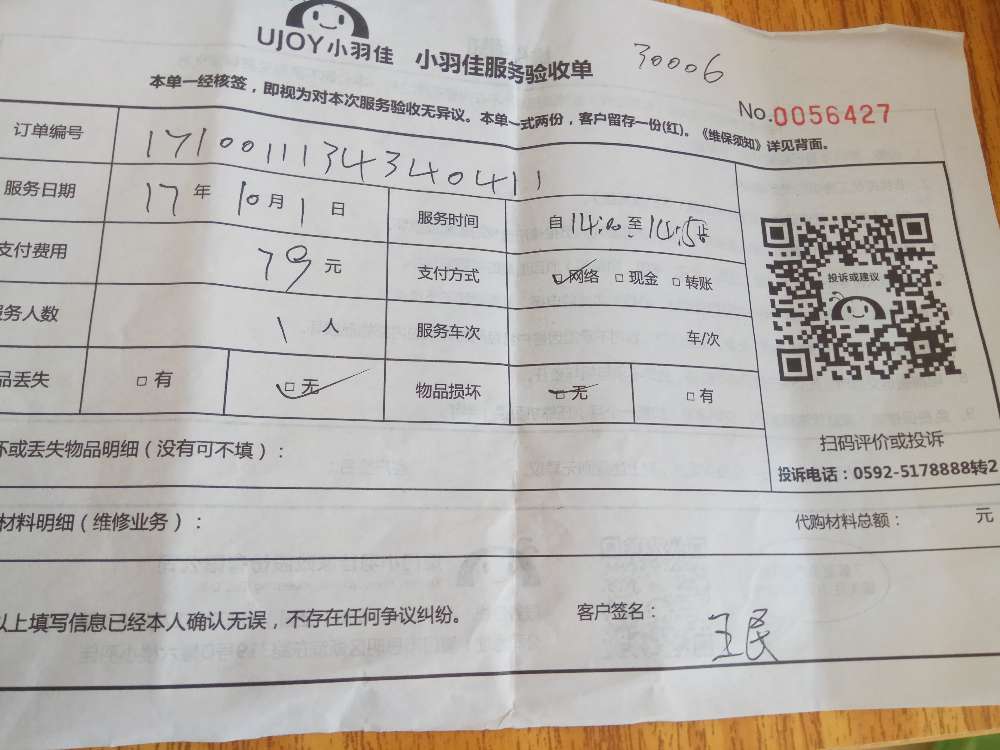 UJOY小羽佳 小羽佳服务验收单 30006
No.0056427
本单一经核签，即视为对本次服务验收无异议。本单一式两份，客户留存一份(红)。《维保须知》详见背面。
订单编号 171001113434340411
服务日期 17 年 10 月 1 日 服务时间 自 14:00 至
支付费用 79 元 支付方式 网络 现金 转账
务人数 1 人 服务车次 车/次
品丢失 有 无 物品损坏 无 有
投诉或建议
扫码评价或投诉
投诉电话：0592-5178888转2
坏或丢失物品明细（没有可不填）：
材料明细（维修业务）： 代购材料总额： 元
以上填写信息已经本人确认无误，不存在任何争议纠纷。 客户签名： 王民